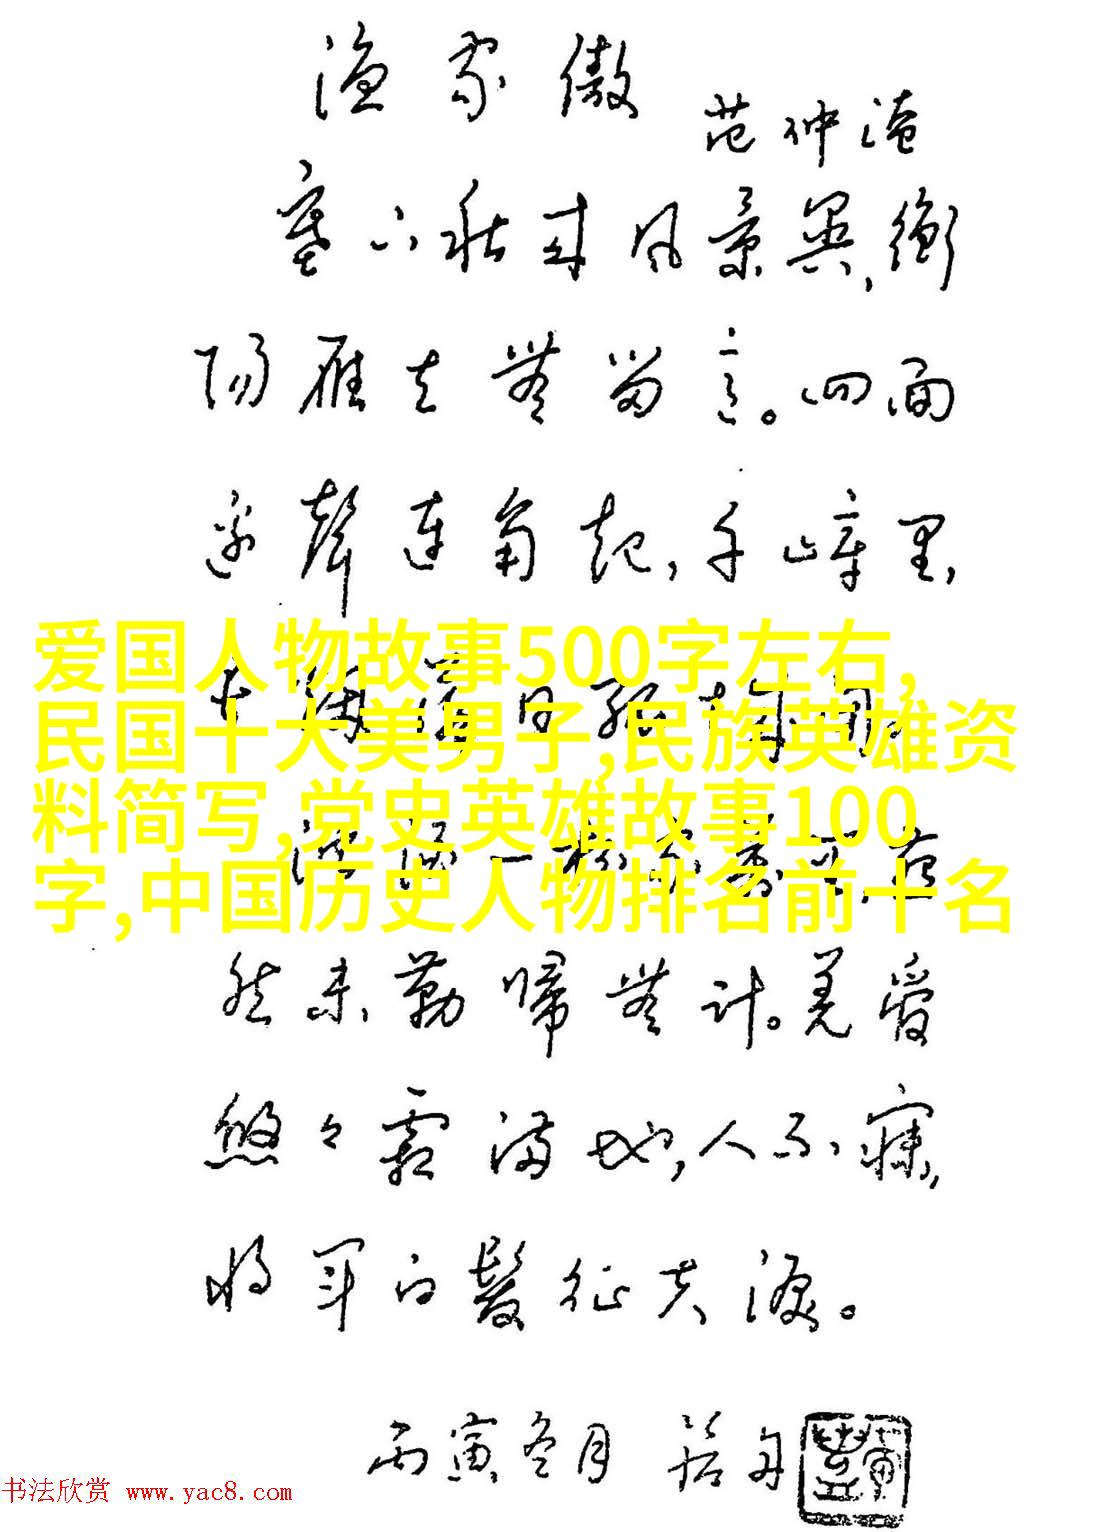 渔家傲
范仲淹
塞下秋来风景異,衡
阳雁去無留意。四面
边聲连角起,千嶂里,
爱国人物故事500字左右,
長烟落日孤城闭。
民国十大美男子,民族英雄资
料简写,党史英雄故事100
濁酒一杯家萬里,燕
字,中国历史人物排名前十名
然未勒歸無计。羌管
悠々霜满地,人不寐,
将军白髮征夫淚。
丙寅冬月
书法欣赏 www.yac8.com